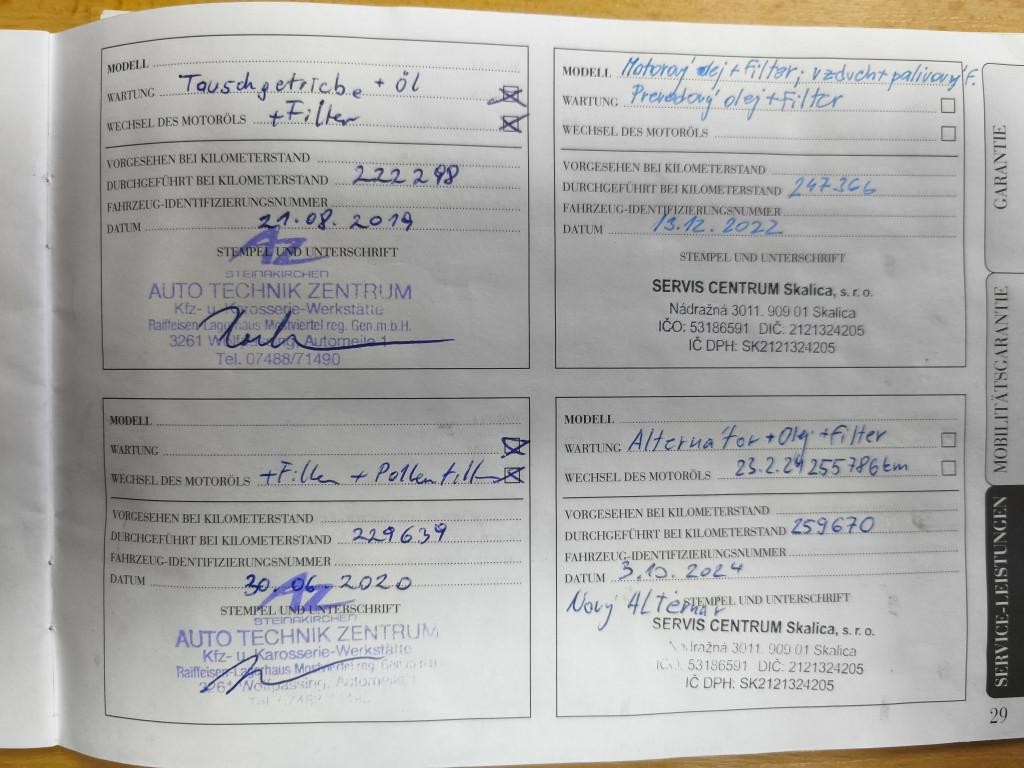 MODELL
WARTUNG Tauschgetriebe + öl
WECHSEL DES MOTORÖLS +Filter
VORGESEHEN BEI KILOMETERSTAND
DURCHGEFÜHRT BEI KILOMETERSTAND 222298
FAHRZEUG-IDENTIFIZIERUNGSNUMMER
DATUM 21.08.2019
STEMPEL UND UNTERSCHRIFT
AZ
STEINAKIRCHEN
AUTO TECHNIK ZENTRUM
Kfz- u. Karosserie-Werkstätte
Raiffeisen-Lagerhaus Mostviertel reg. Gen.m.b.H.
3261 Wolfpassing, Automeile 1
Tel. 07488/71490
MODELL Motorový olej + Filter; vzduch + palivový f.
WARTUNG Prevodový olej + Filter
WECHSEL DES MOTORÖLS
VORGESEHEN BEI KILOMETERSTAND
DURCHGEFÜHRT BEI KILOMETERSTAND 247366
FAHRZEUG-IDENTIFIZIERUNGSNUMMER
DATUM 13.12.2022
STEMPEL UND UNTERSCHRIFT
SERVIS CENTRUM Skalica, s. r. o.
Nádražná 3011, 909 01 Skalica
IČO: 53186591 DIČ: 2121324205
IČ DPH: SK2121324205
MODELL
WARTUNG
WECHSEL DES MOTORÖLS +Filter + Pollenfilter
VORGESEHEN BEI KILOMETERSTAND
DURCHGEFÜHRT BEI KILOMETERSTAND 229639
FAHRZEUG-IDENTIFIZIERUNGSNUMMER
DATUM 30.06.2020
STEMPEL UND UNTERSCHRIFT
AZ
STEINAKIRCHEN
AUTO TECHNIK ZENTRUM
Kfz- u. Karosserie-Werkstätte
Raiffeisen-Lagerhaus Mostviertel reg. Gen.m.b.H.
3261 Wolfpassing, Automeile
Tel. 07488/71490
MODELL
WARTUNG Alternátor + Olej + Filter
WECHSEL DES MOTORÖLS 23.2.24 255786km
VORGESEHEN BEI KILOMETERSTAND
DURCHGEFÜHRT BEI KILOMETERSTAND 259670
FAHRZEUG-IDENTIFIZIERUNGSNUMMER
DATUM 3.10.2024
STEMPEL UND UNTERSCHRIFT
Nový Alternár
SERVIS CENTRUM Skalica, s. r. o.
Nádražná 3011, 909 01 Skalica
IČO: 53186591 DIČ: 2121324205
IČ DPH: SK2121324205
GARANTIE
MOBILITÄTSGARANTIE
SERVICE-LEISTUNGEN
29